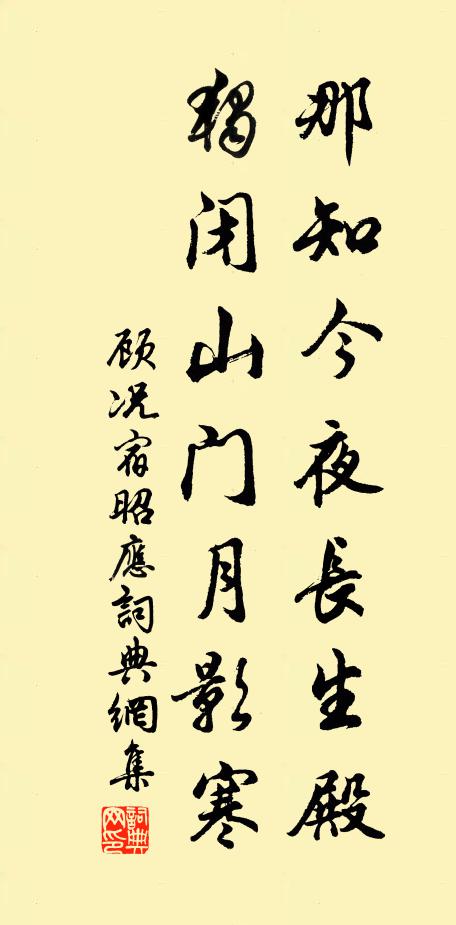 那知今夜長生殿
獨闭山门月影寒
顾况宿昭應詞典網集
詞典网印